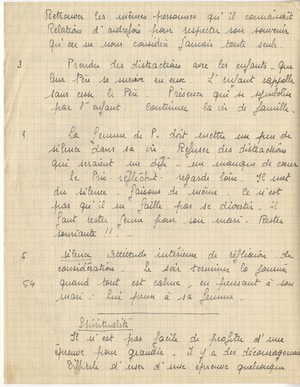 Retrouver les mêmes personnes qu'il connaissait
Relations d'autrefois pour respecter son souvenir
qu'on ne nous considère jamais toute seule.
3 Prendre des distractions avec les enfants - que
leur Père se survive en eux. L'enfant rappelle
sans cesse le Père Présence qui se symbolise
par l'enfant continuer la vie de famille.
4 La femme de P. doit mettre un peu de
silence dans sa vie. Refuser des distractions
qui seraient un défi - un manque de cœur
Le Pris. réfléchit - regarde loin. Il met
du silence. Faisons de même. Ce n'est
pas qu'il ne faille pas se divertir. Il
faut rester jeune pour son mari. Rester
souriante !!
5 Silence Attitude intérieure de réflexion, de
considération. Le soir terminer la journée
54 quand tout est calme, en pensant à son
mari : Qui pense à sa femme.
Spiritualité
Il n'est pas facile de profiter d'une
épreuve pour grandir. Il y a des découragements
Difficile d'user d'une épreuve quelconque